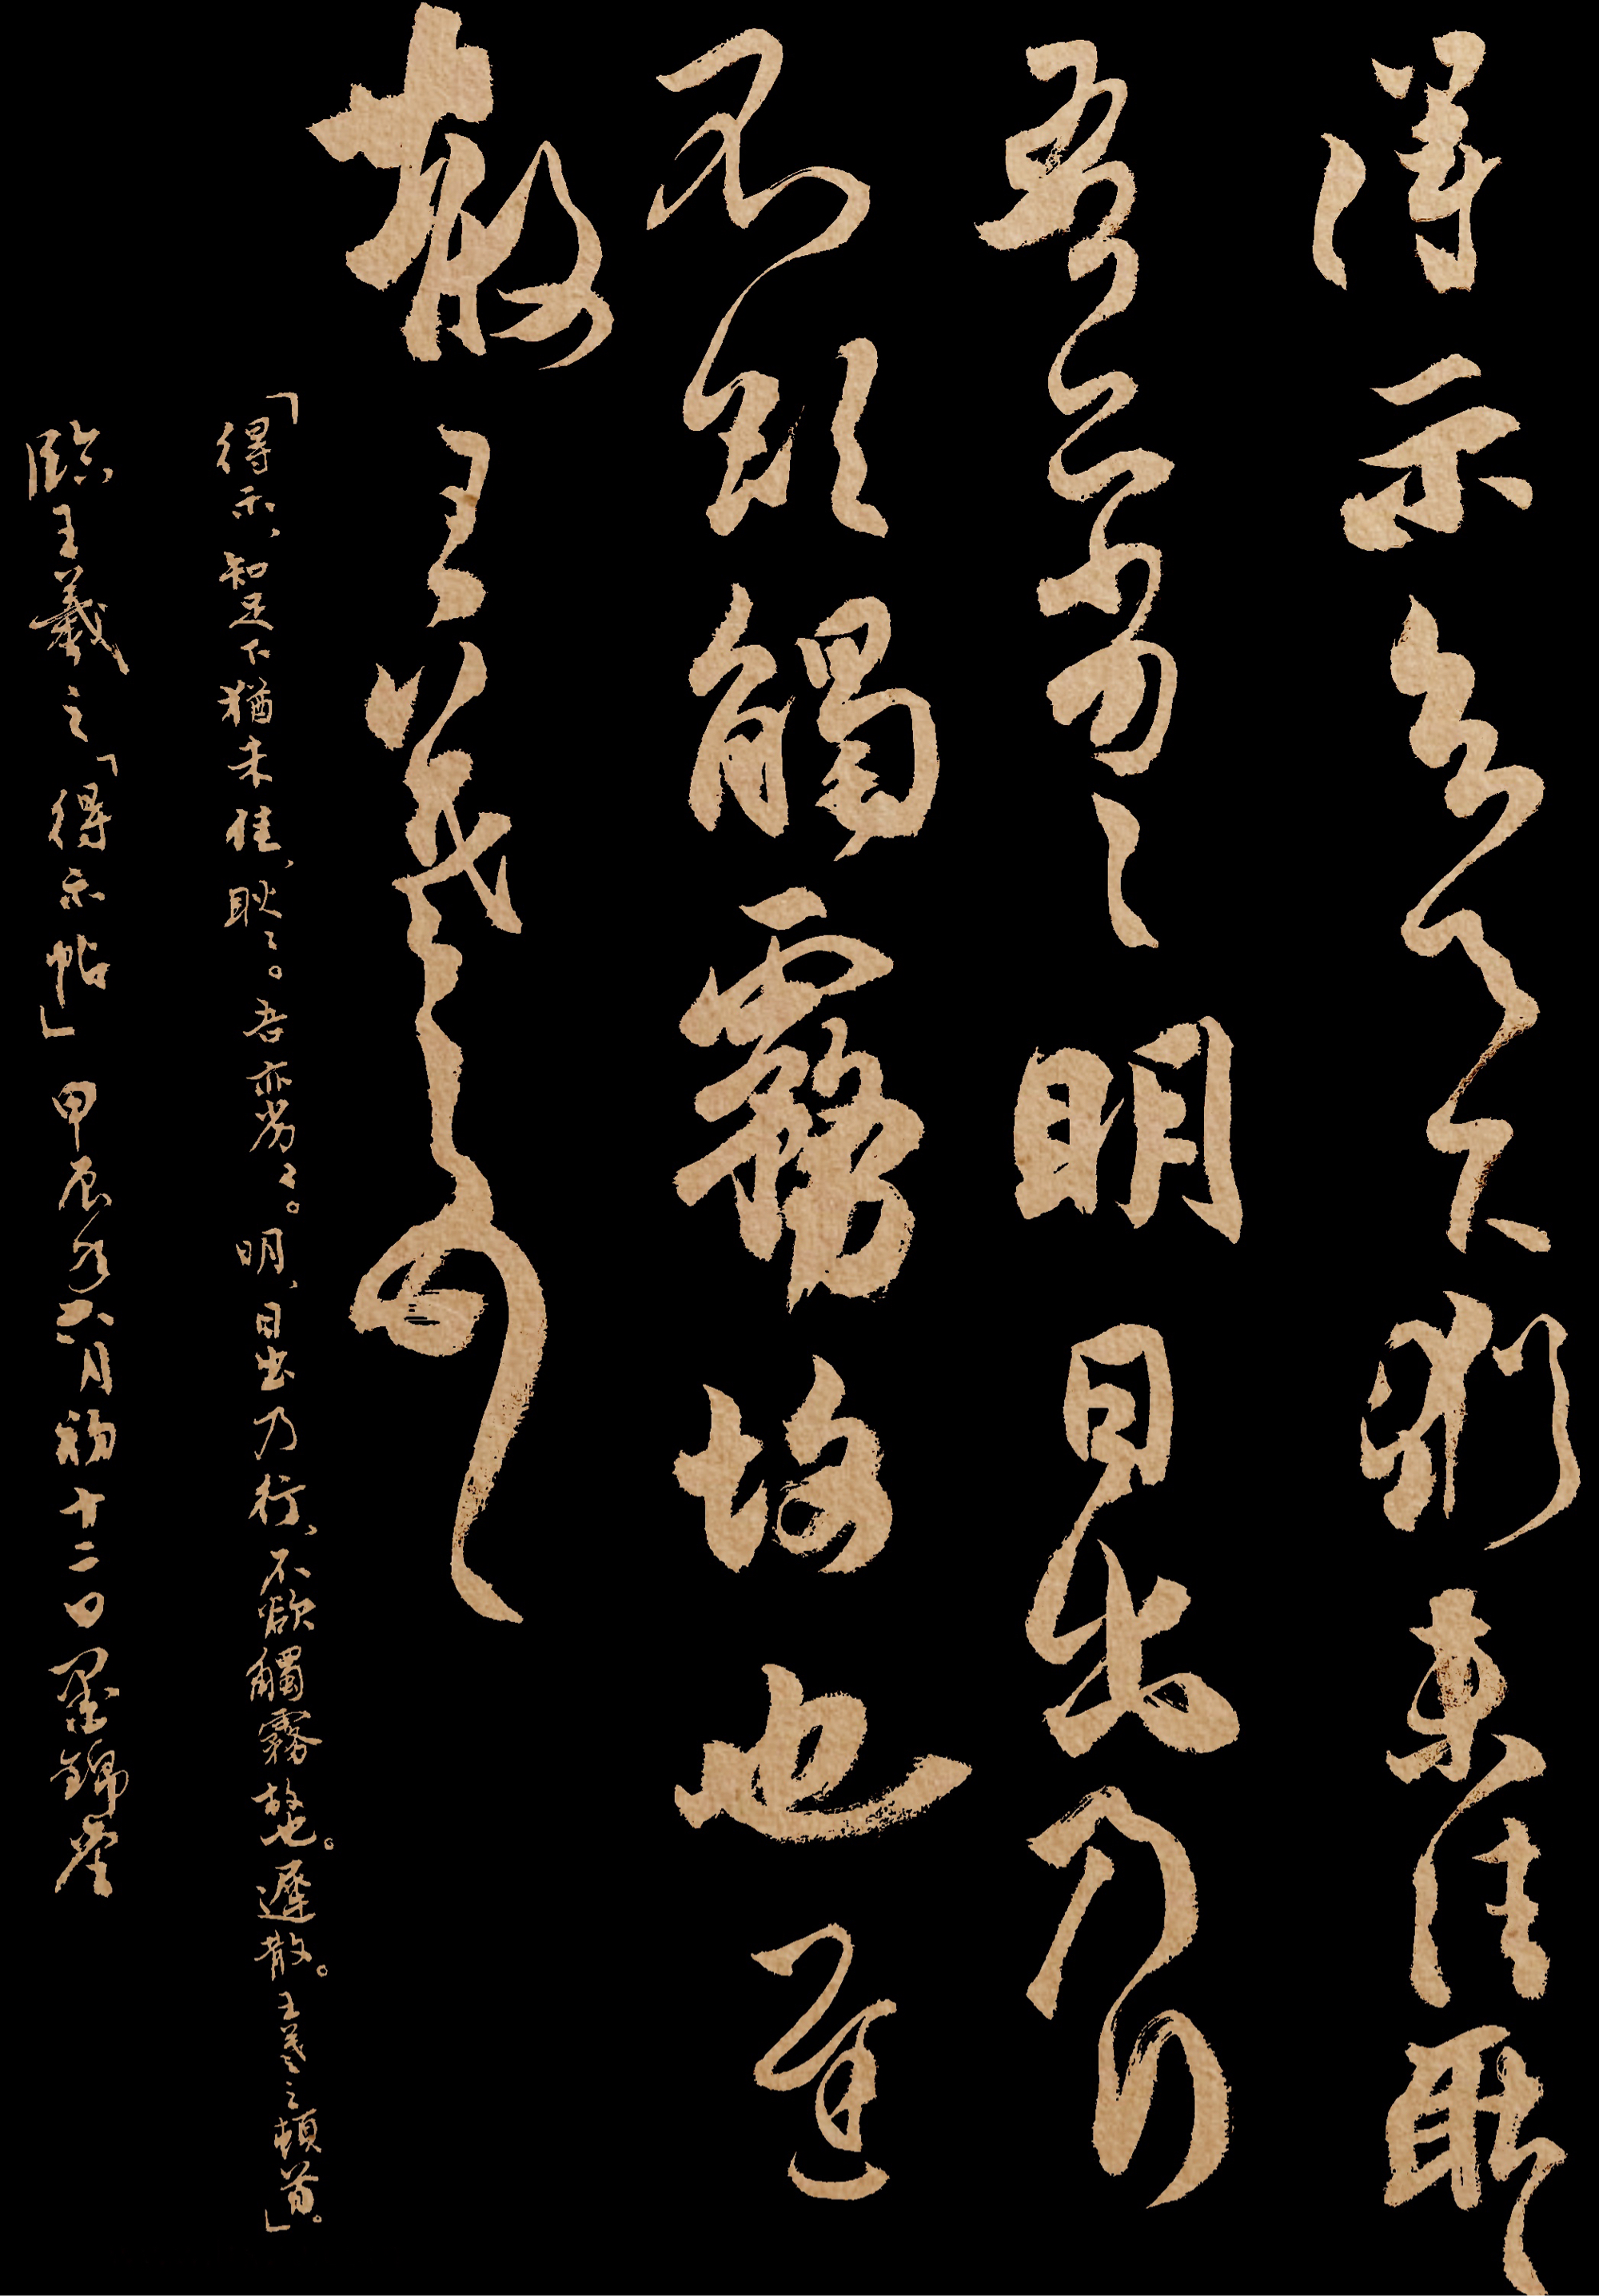 得示知足下猶未佳耿〻
吾亦劣〻明日出乃行
不欲觸霧故也遲
散王羲之頓首
「得示、知足下猶未佳、耿〻。吾亦劣〻。明、日出乃行、不欲觸霧故也。遲散。王羲之頓首。」
臨王羲之「得示帖」甲辰年六月初十二日錦